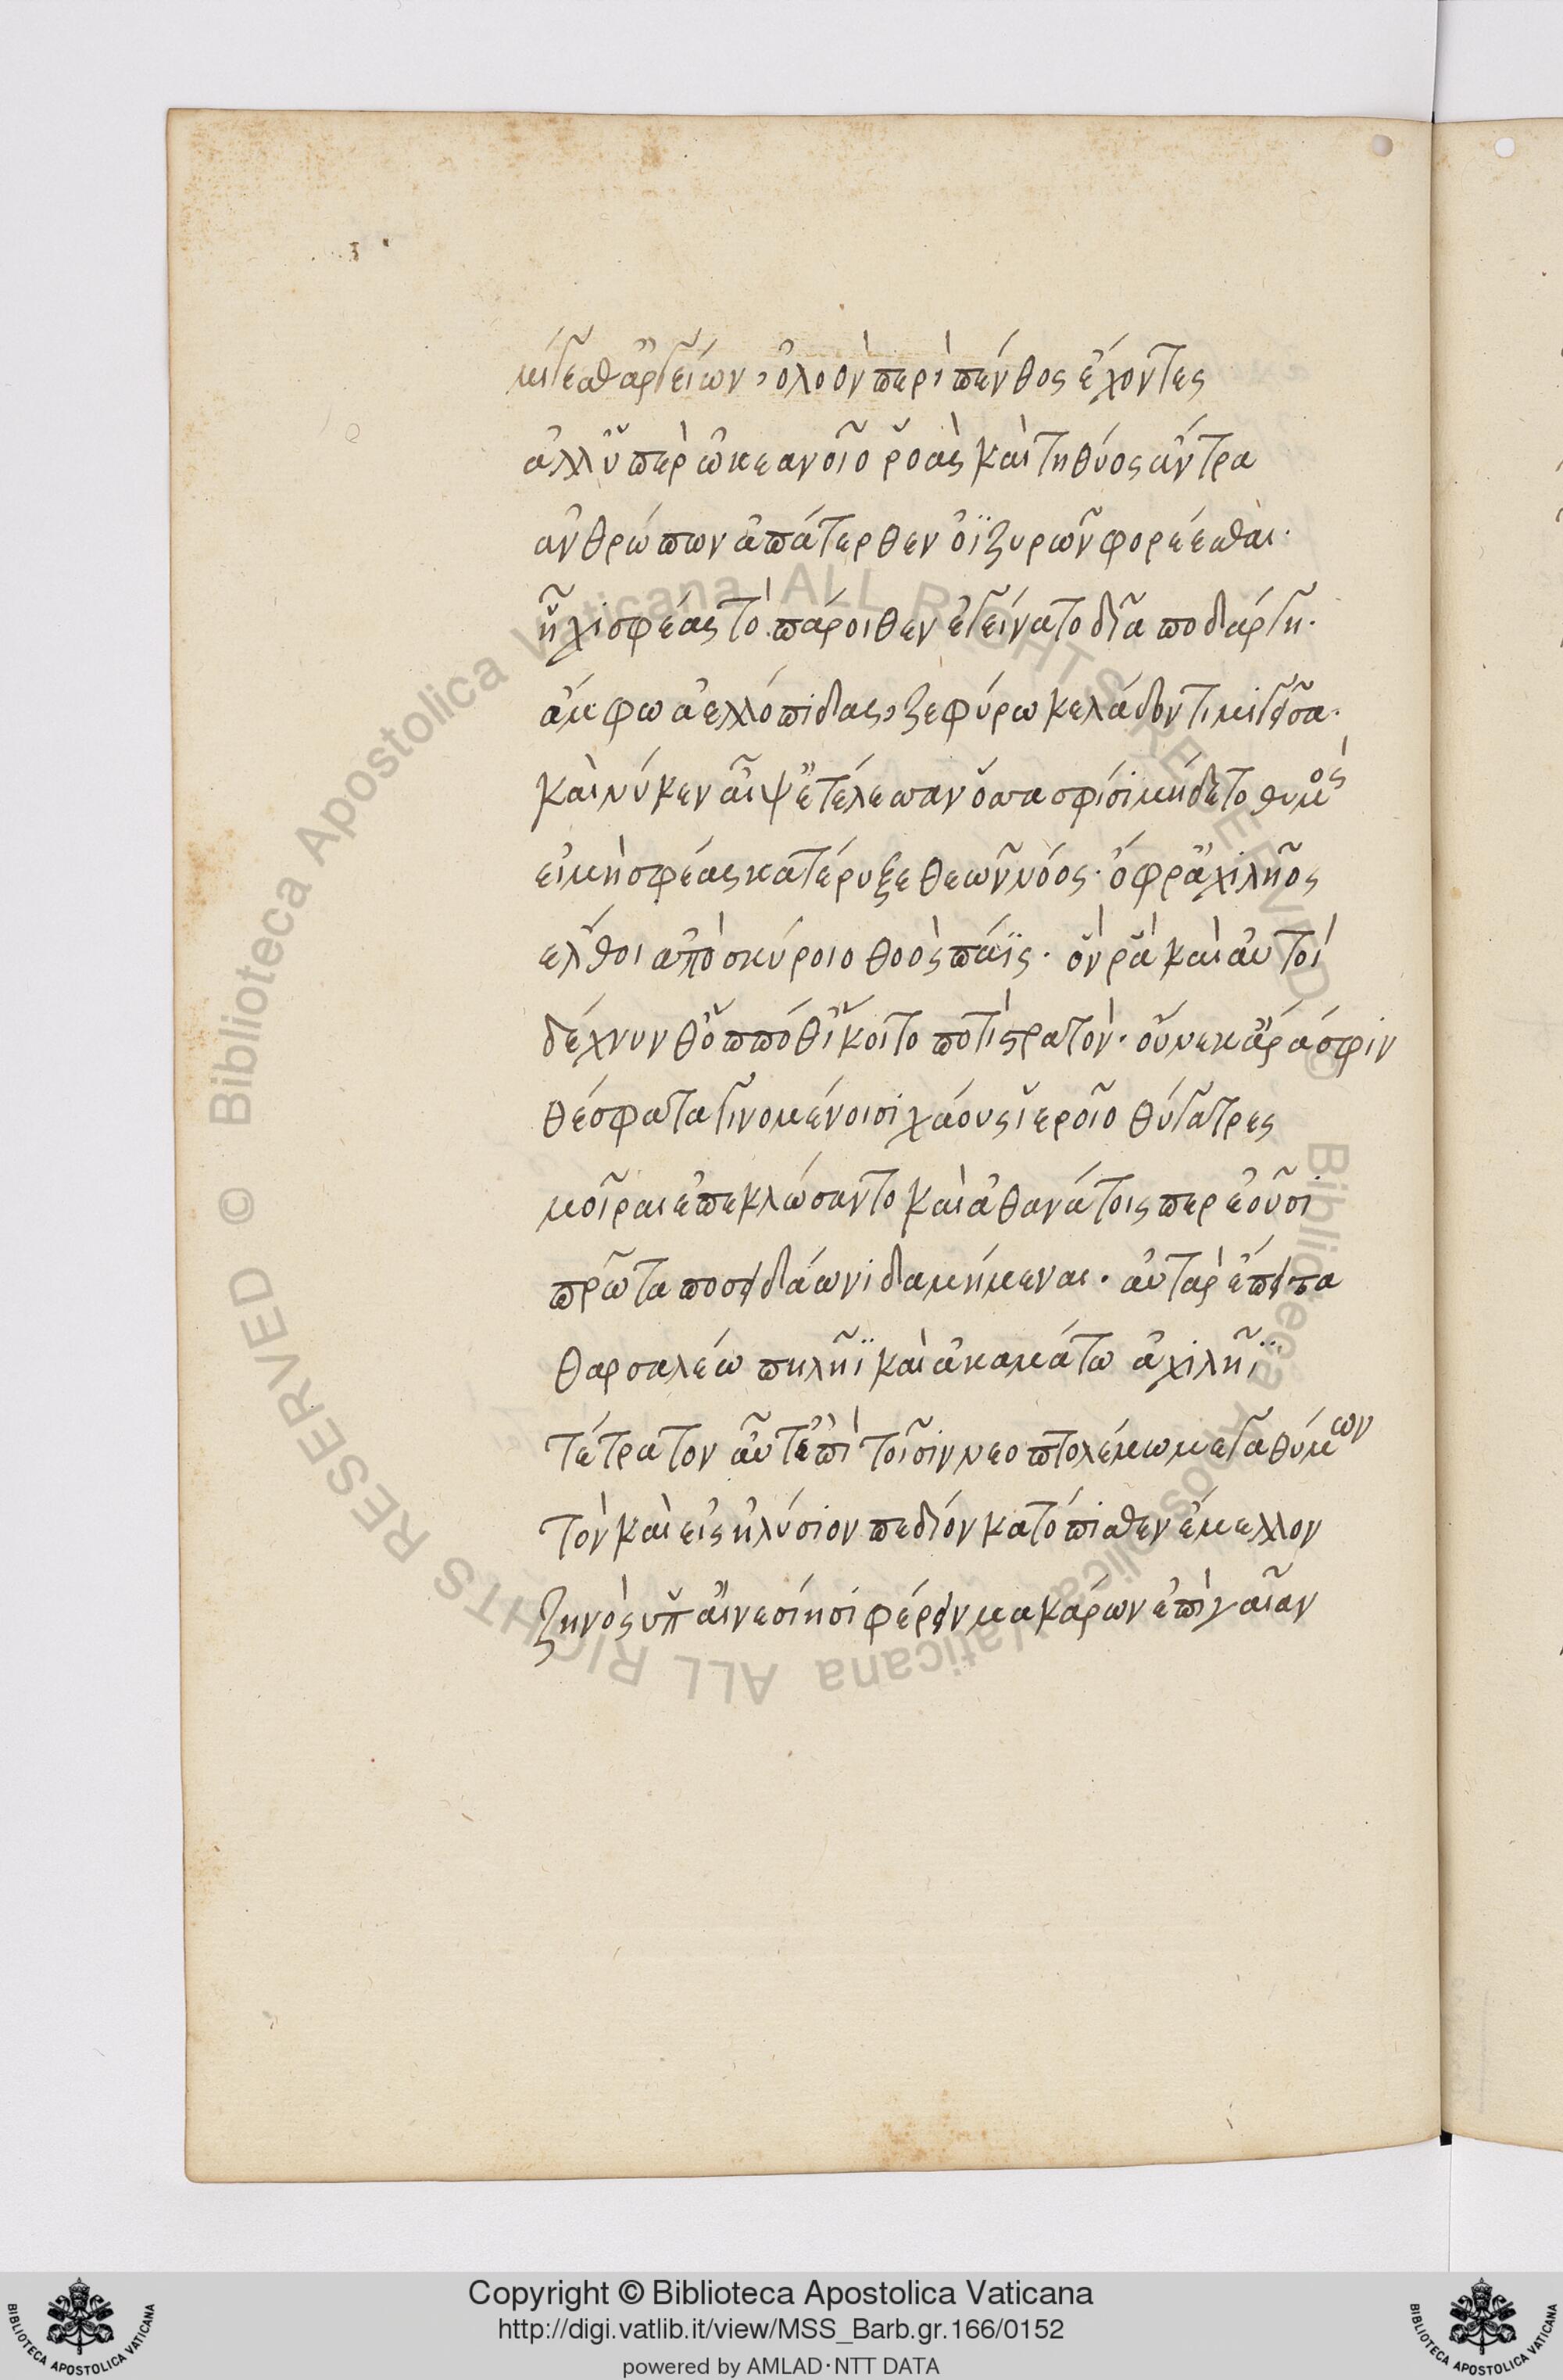 μίγεσθ ἀργείων, ὀλοὸν περὶ πένθος ἔχοντες
ἀλλ ὑπὲρ ὠκεανοῖο ῥοὰς καὶ τηθύος ἄντρα
ἀνθρώπων ἀπάτερθεν ὀϊζυρῶν φορέεσθαι·
ἧχι σφέας τὸ πάροιθεν ἐγείνατο δῖα ποδάργη·
ἄμφω ἀελλόπιδας, ζεφύρω κελάδοντι μιγεῖσα·
καὶ νύ κεν αἶψ ἐτέλεσσαν ὅσσα σφίσι μήδετο θυμός
εἰ μὴ σφέας κατέρυξε θεῶν νόος· ὄφρ ἀχιλῆος
ἔλθοι ἀπὸ σκύροιο θοὸς πάϊς· ὅν ῥα καὶ αὐτοὶ
δέχνυνθ ὁππόθ ἵκοιτο ποτὶ στρατόν· οὕνεκ ἄρά σφιν
θέσφατα γινομένοισι χάους ἱεροῖο θύγατρες
μοῖραι ἐπεκλώσαντο καὶ ἀθανάτοις περ ἐοῦσι
πρῶτα ποσειδάωνι δαμήμεναι· αὐτὰρ ἔπειτα
θαρσαλέω πηλῆϊ καὶ ἀκαμάτω ἀχιλῆϊ
τέτρατον αὖτ ἐπὶ τοῖσιν νεοπτολέμω μεγαθύμων
τὸν καὶ εἰς ἠλύσιον πεδίον κατόπισθεν ἔμελλον
ζηνὸς ὑπ αἰνεσίησι φέρειν μακάρων ἐπὶ γαῖαν
Copyright © Biblioteca Apostolica Vaticana
http://digi.vatlib.it/view/MSS_Barb.gr.166/0152
powered by AMLAD·NTT DATA
BIBLIOTECA APOSTOLICA VATICANA
BIBLIOTECA APOSTOLICA VATICANA
Biblioteca Apostolica Vaticana ALL RIGHTS RESERVED ©
Biblioteca Apostolica Vaticana ALL RIGHTS RESERVED ©